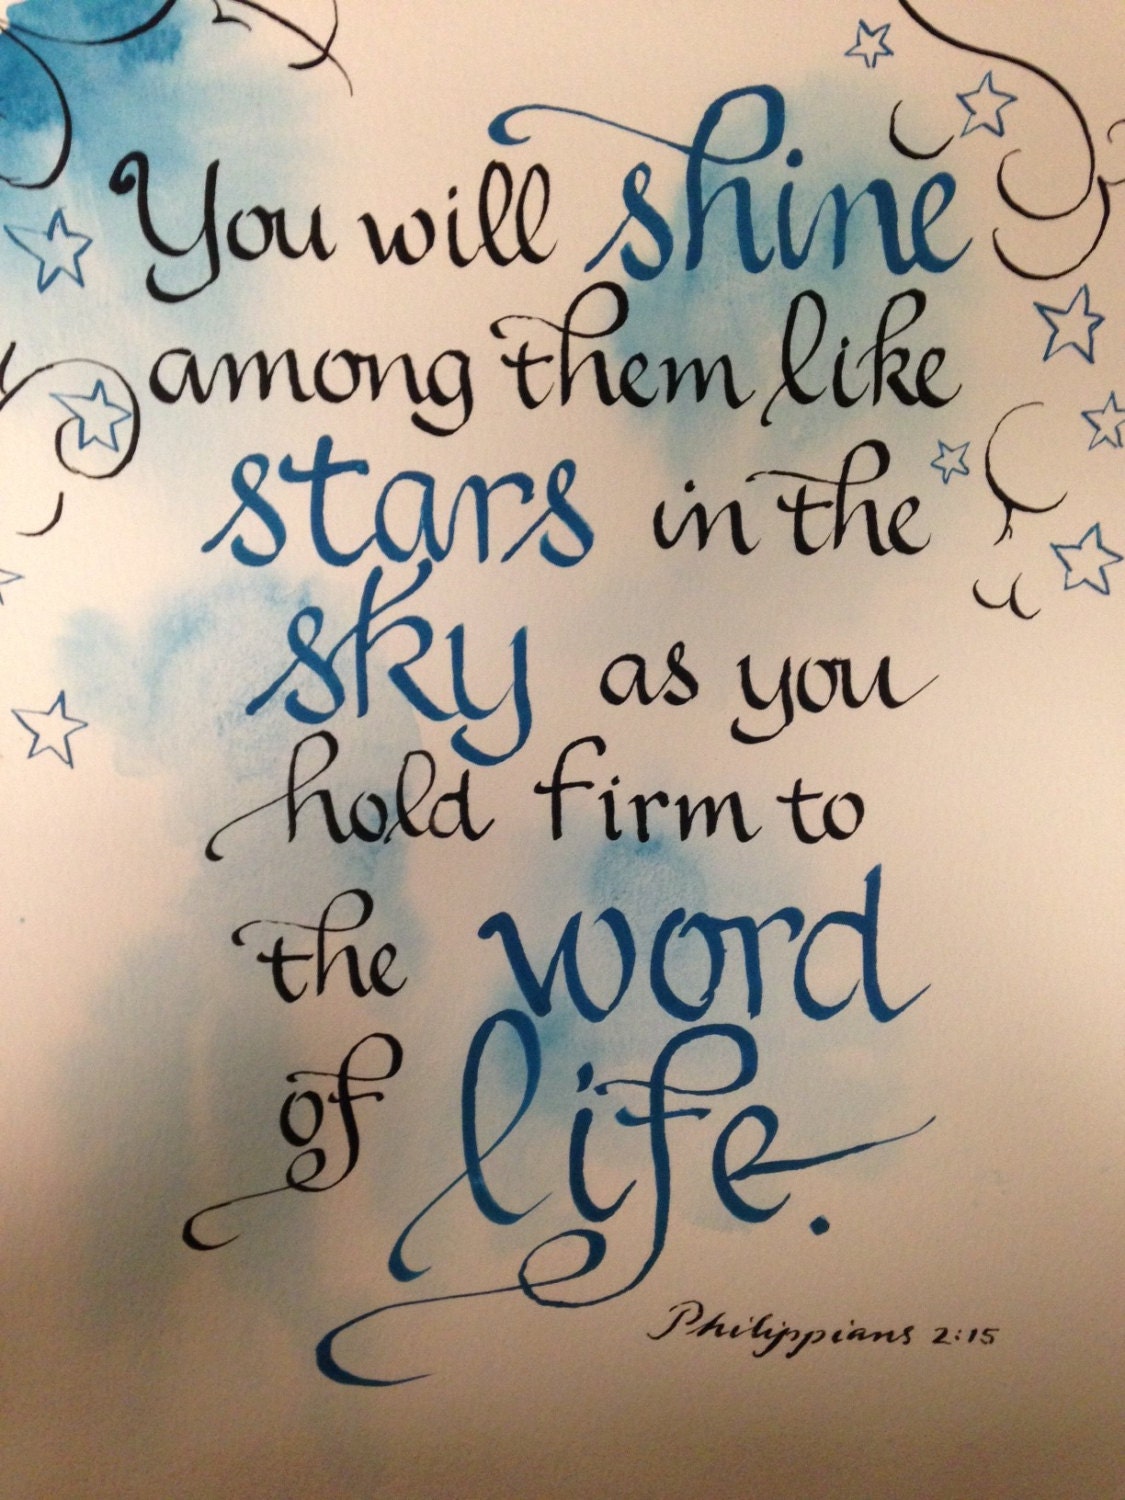 You will shine
among them like
stars in the
sky as you
hold firm to
the word
of life.
Philippians 2:15